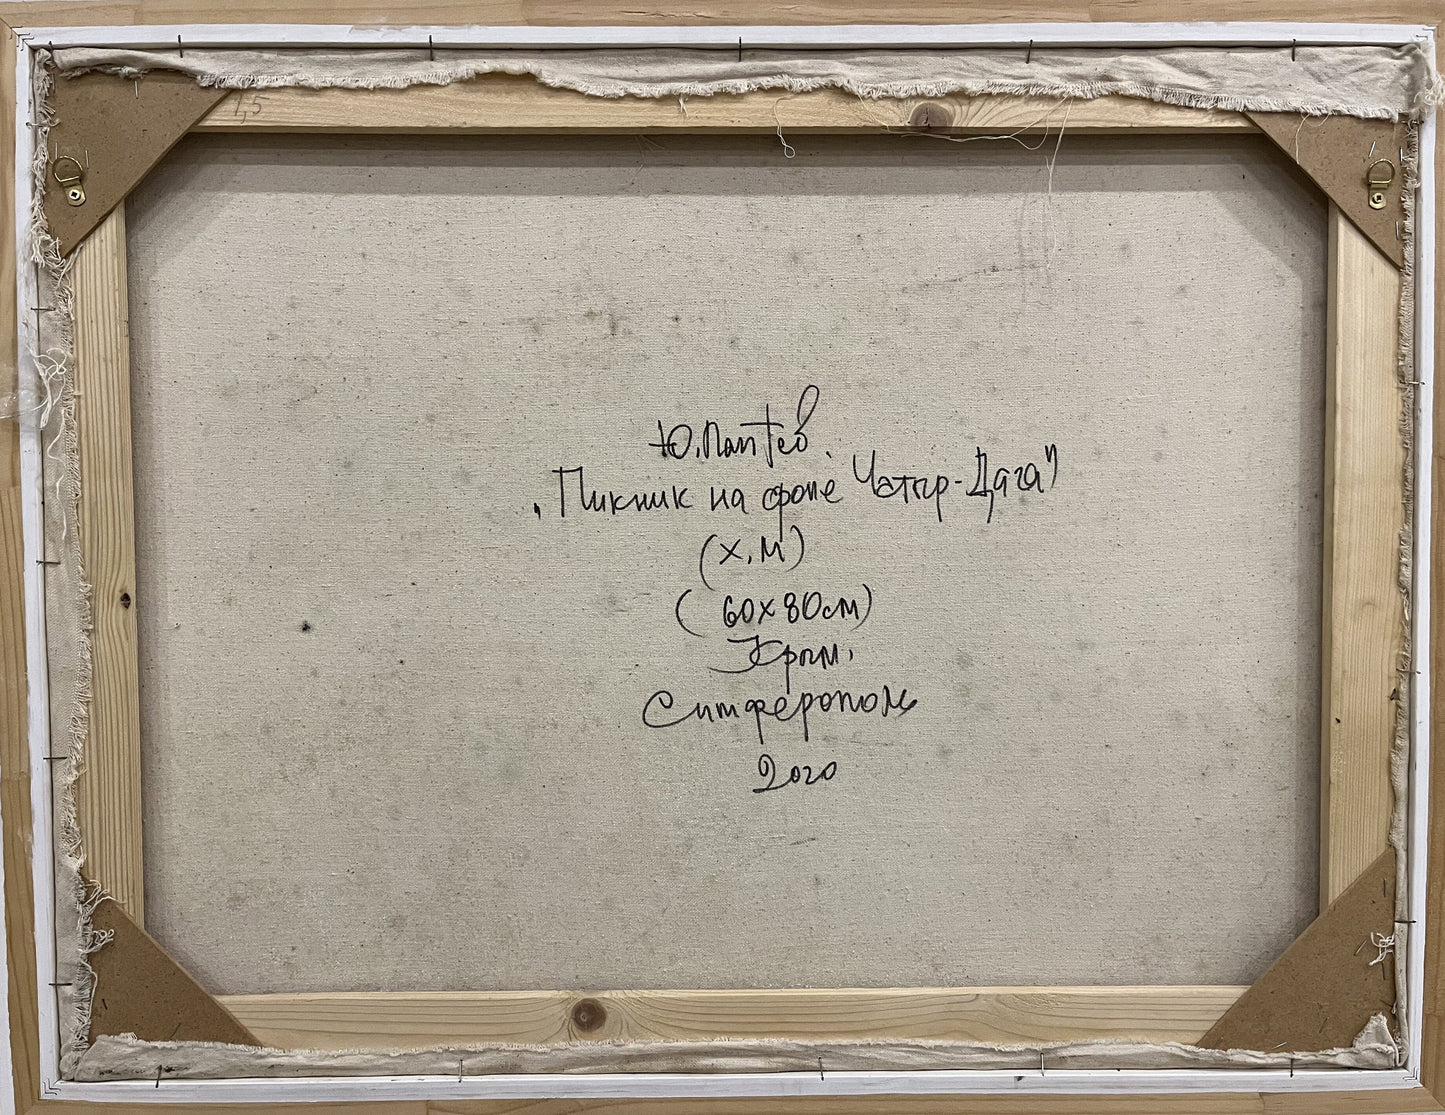 1,5
Ю. Лаптев.
„Пикник на фоне Чатыр-Дага"
(х, м)
(60х80см)
Крым,
Симферополь
2020